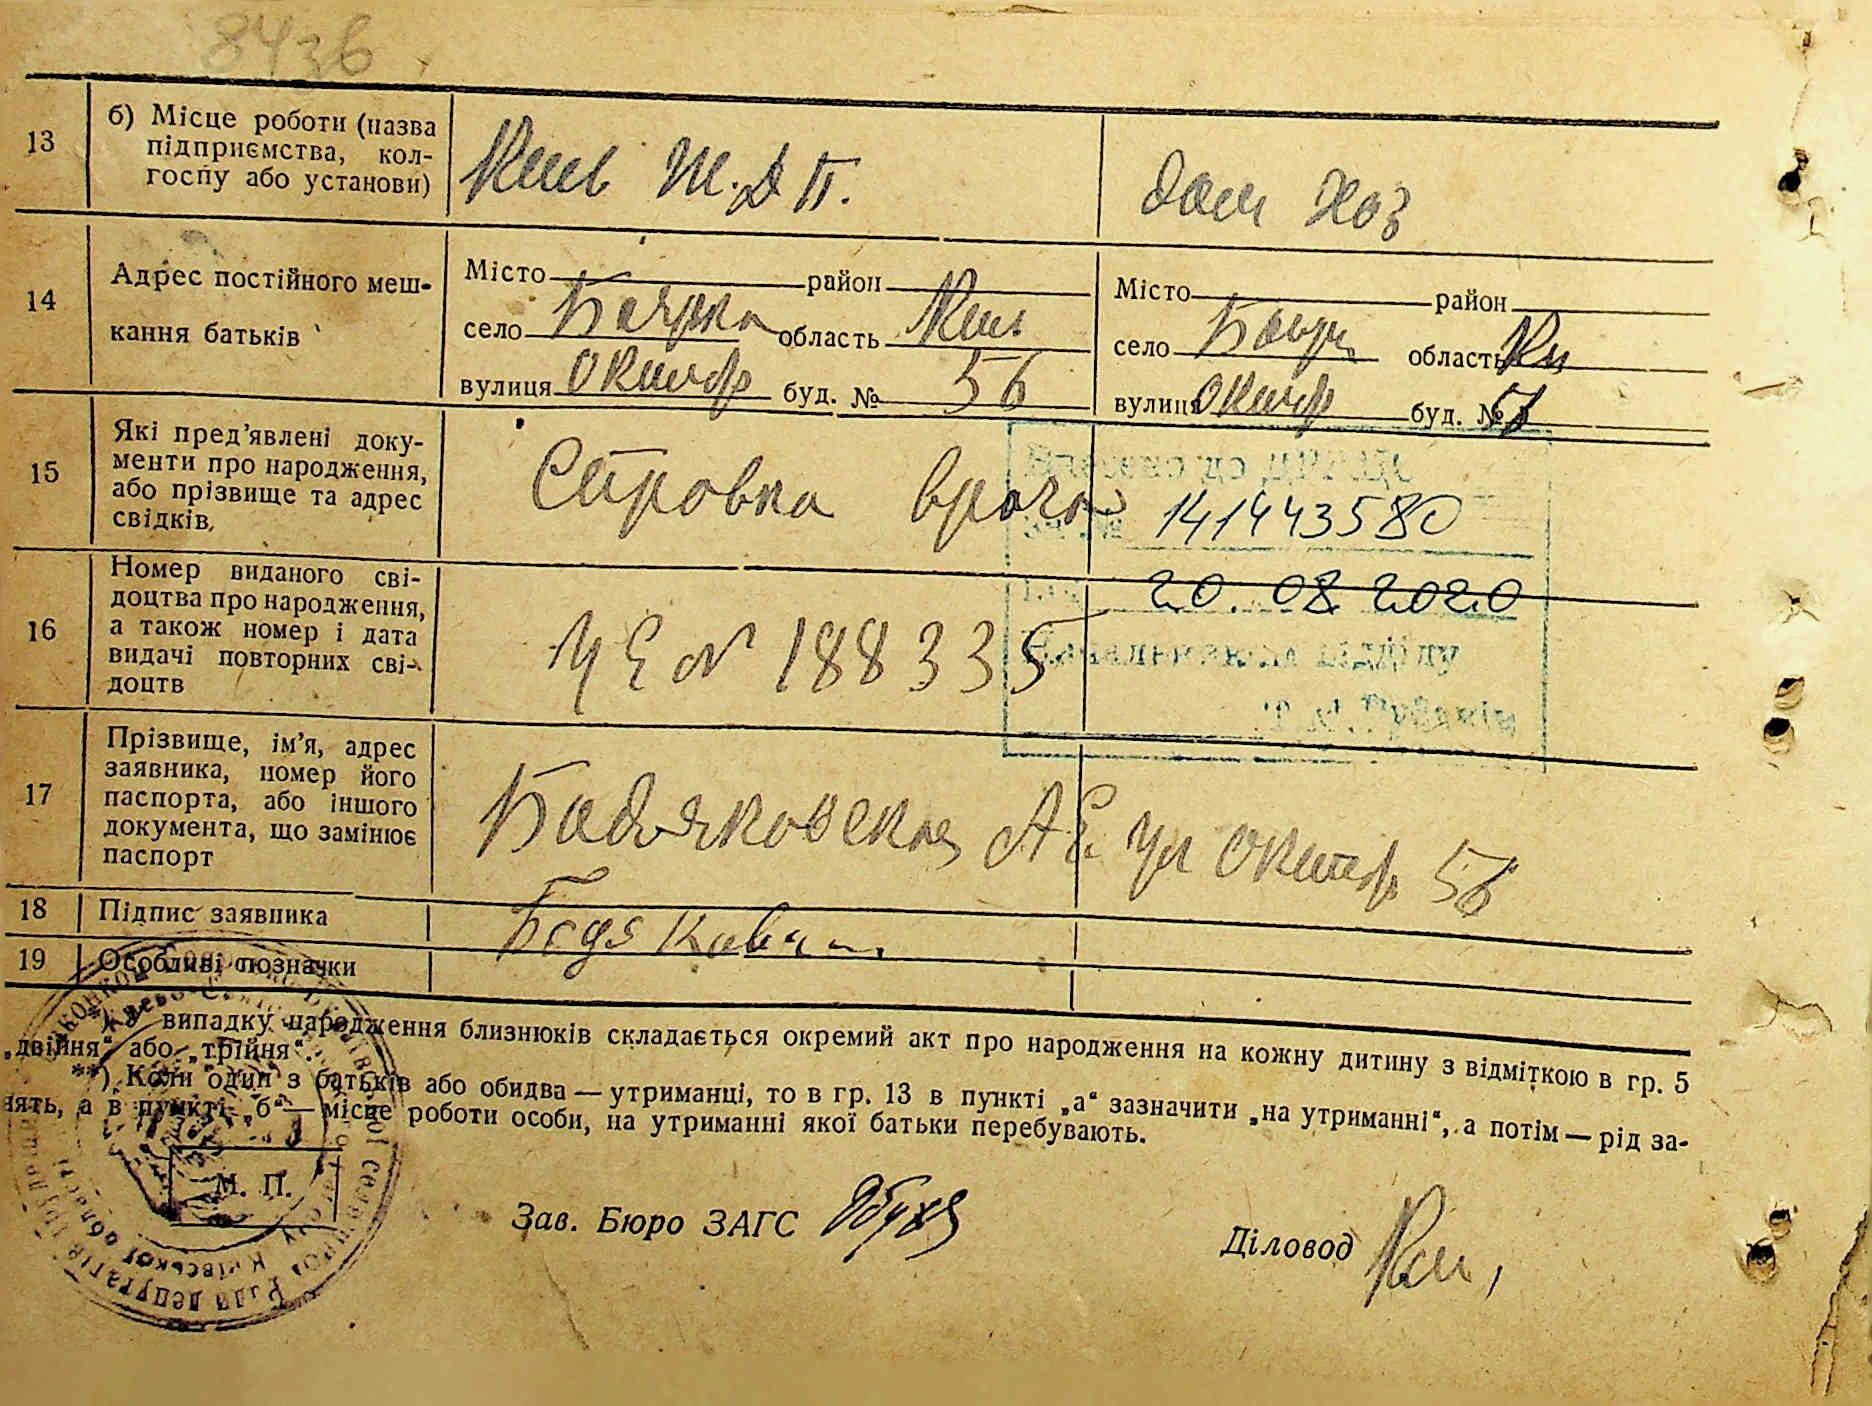 843в
13
б) Місце роботи (назва
підприємства, кол-
госпу або установи)
Киев Ж.Д П.
дом хоз
14
Адрес постійного меш-
кання батьків
Місто район
село Боярка область Киев
вулиця Октябр буд. № 56
Місто район
село Бояр область Ки
вулиця Октябр буд. №
15
Які пред'явлені доку-
менти про народження,
або прізвище та адрес
свідків,
Справка врача
141443580
20.08.2020
16
Номер виданого сві-
доцтва про народження,
а також номер і дата
видачі повторних сві-
доцтв
ЧЕ № 188335
17
Прізвище, ім'я, адрес
заявника, номер його
паспорта, або іншого
документа, що замінює
паспорт
Бадяковская А Е. ул Октябр 56
18
Підпис заявника
19
Особливі позначки
*) У випадку народження близнюків складається окремий акт про народження на кожну дитину з відміткою в гр. 5
„двійня“ або „трійня“.
**) Коли один з батьків або обидва — утриманці, то в гр. 13 в пункті „а“ зазначити „на утриманні“, а потім — рід за-
нять, а в пункті „б“ — місце роботи особи, на утриманні якої батьки перебувають.
М. П.
Зав. Бюро ЗАГС
Діловод
Ради депутатів
Київської області